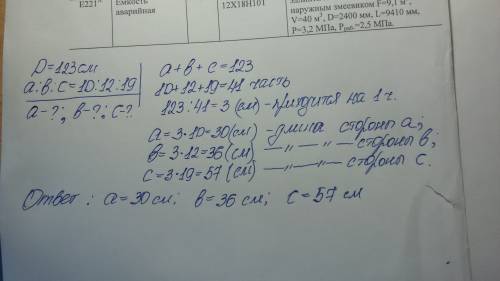 Е221*
Емкость
аварийная
12Х18Н10I
наружным змеевиком F=9,1 м²,
V=40 м³, D=2400 мм, L=9410 мм,
Р=3,2 МПа, Рраб.=2,5 МПа.
D=123см
а:в:с=10:12:19
а-?; в-?; с-?
а+в+с=123
10+12+19=41 часть
123:41=3 (см) -приходится на 1 ч.
а=3·10=30(см) -длина стороны а;
в=3·12=36(см) —"—"— стороны в;
с=3·19=57(см) —"—"— стороны с.
Ответ: а=30см; в=36 см; с=57 см